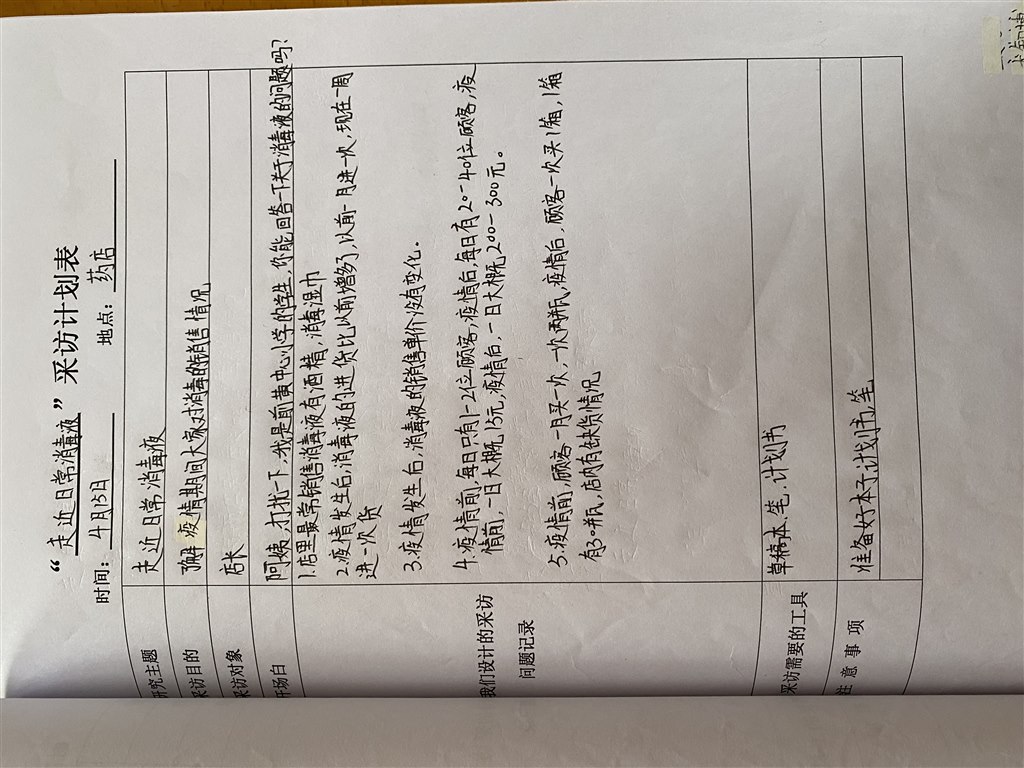 “走近日常消毒液”采访计划表
时间：4月15日 地点：药店
研究主题 走近日常消毒液
采访目的 了解疫情期间大家对消毒的销售情况
采访对象 店长
开场白 阿姨,打扰一下,我是前黄中心小学的学生,你能回答一下关于消毒液的问题吗?
我们设计的采访
问题记录
1.店里最常销售消毒液有酒精,消毒湿巾
2.疫情发生后,消毒液的进货比以前增多了,以前一月进一次,现在一周
进一次货
3.疫情发生后,消毒液的销售单价没有变化.
4.疫情前,每日只有1-2位顾客,疫情后,每日有20-40位顾客,疫
情前,一日大概15元,疫情后,一日大概200-300元。
5.疫情前,顾客一月买一次,一次两瓶,疫情后,顾客一次买1箱,1箱
有30瓶,店内有缺货情况
采访需要的工具 草稿本、笔、计划书
注意事项 准备好本子,计划书,笔